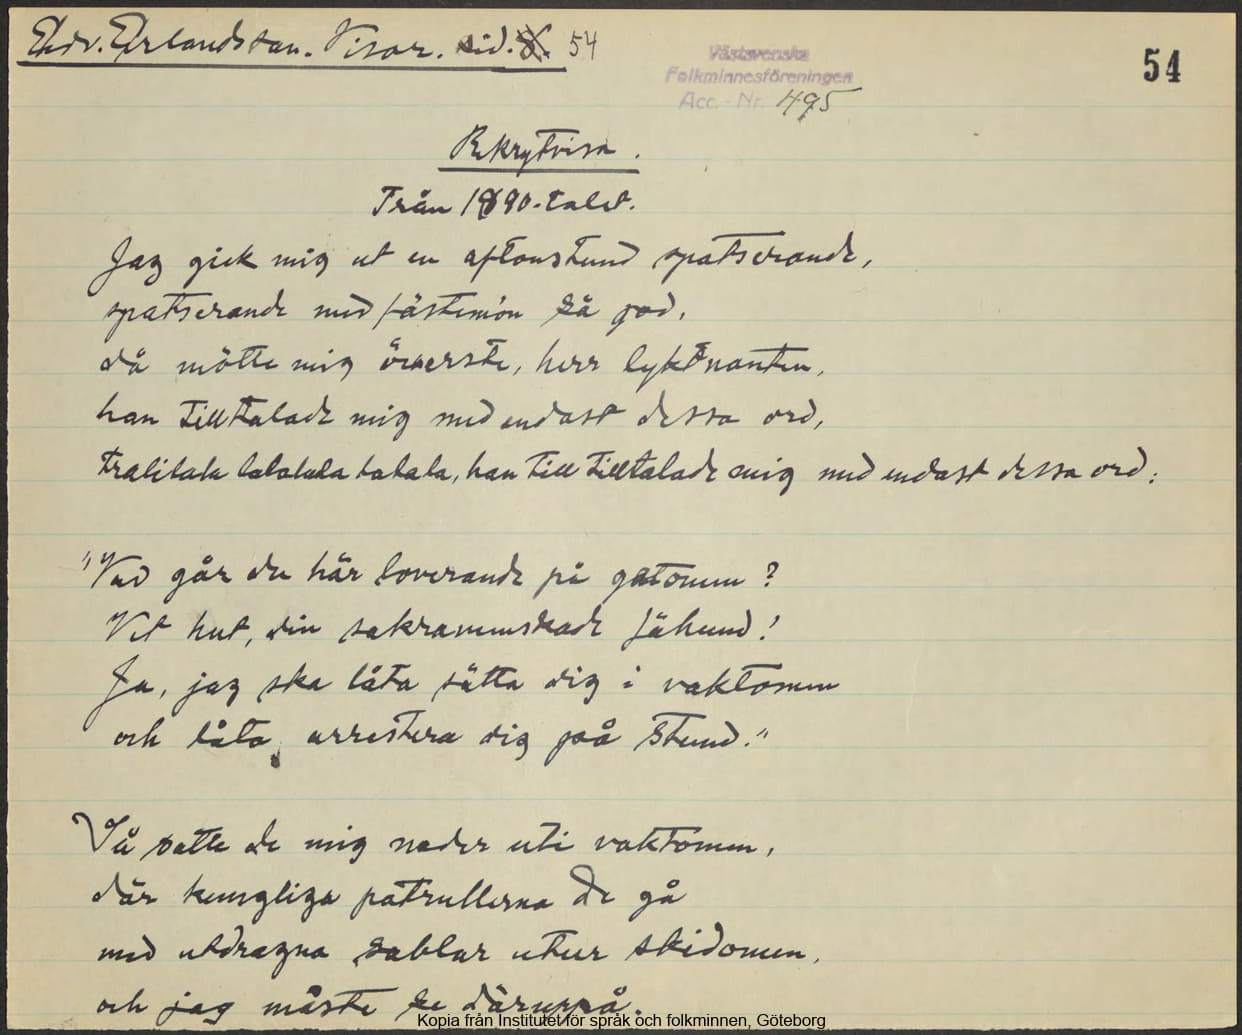 Edv. Erlandsson. Visor. sid. 8. 54
Västsvenska
Folkminnesföreningen
Acc. - Nr. 495
54
Rekrytvisa.
Från 1890-talet.
Jag gick mig ut en aftonstund spatserande,
spatserande med fästemön så god,
då mötte mig överste, herr lyktnanten,
han tilltalade mig med endast dessa ord,
tralilala lalalala lalala, han till tilltalade mig med endast dessa ord:
"Vad går du här loverande på gatomen?
Vet hut, din sakrammskade fähund!
Ja, jag ska låta sätta dig i vaktomen
och låta arrestera dig på stund."
Så satte de mig neder uti vaktomen,
där kungliga patrullerna de gå
med utdragna sablar utur skidomen,
och jag måste se däruppå.
Kopia från Institutet för språk och folkminnen, Göteborg